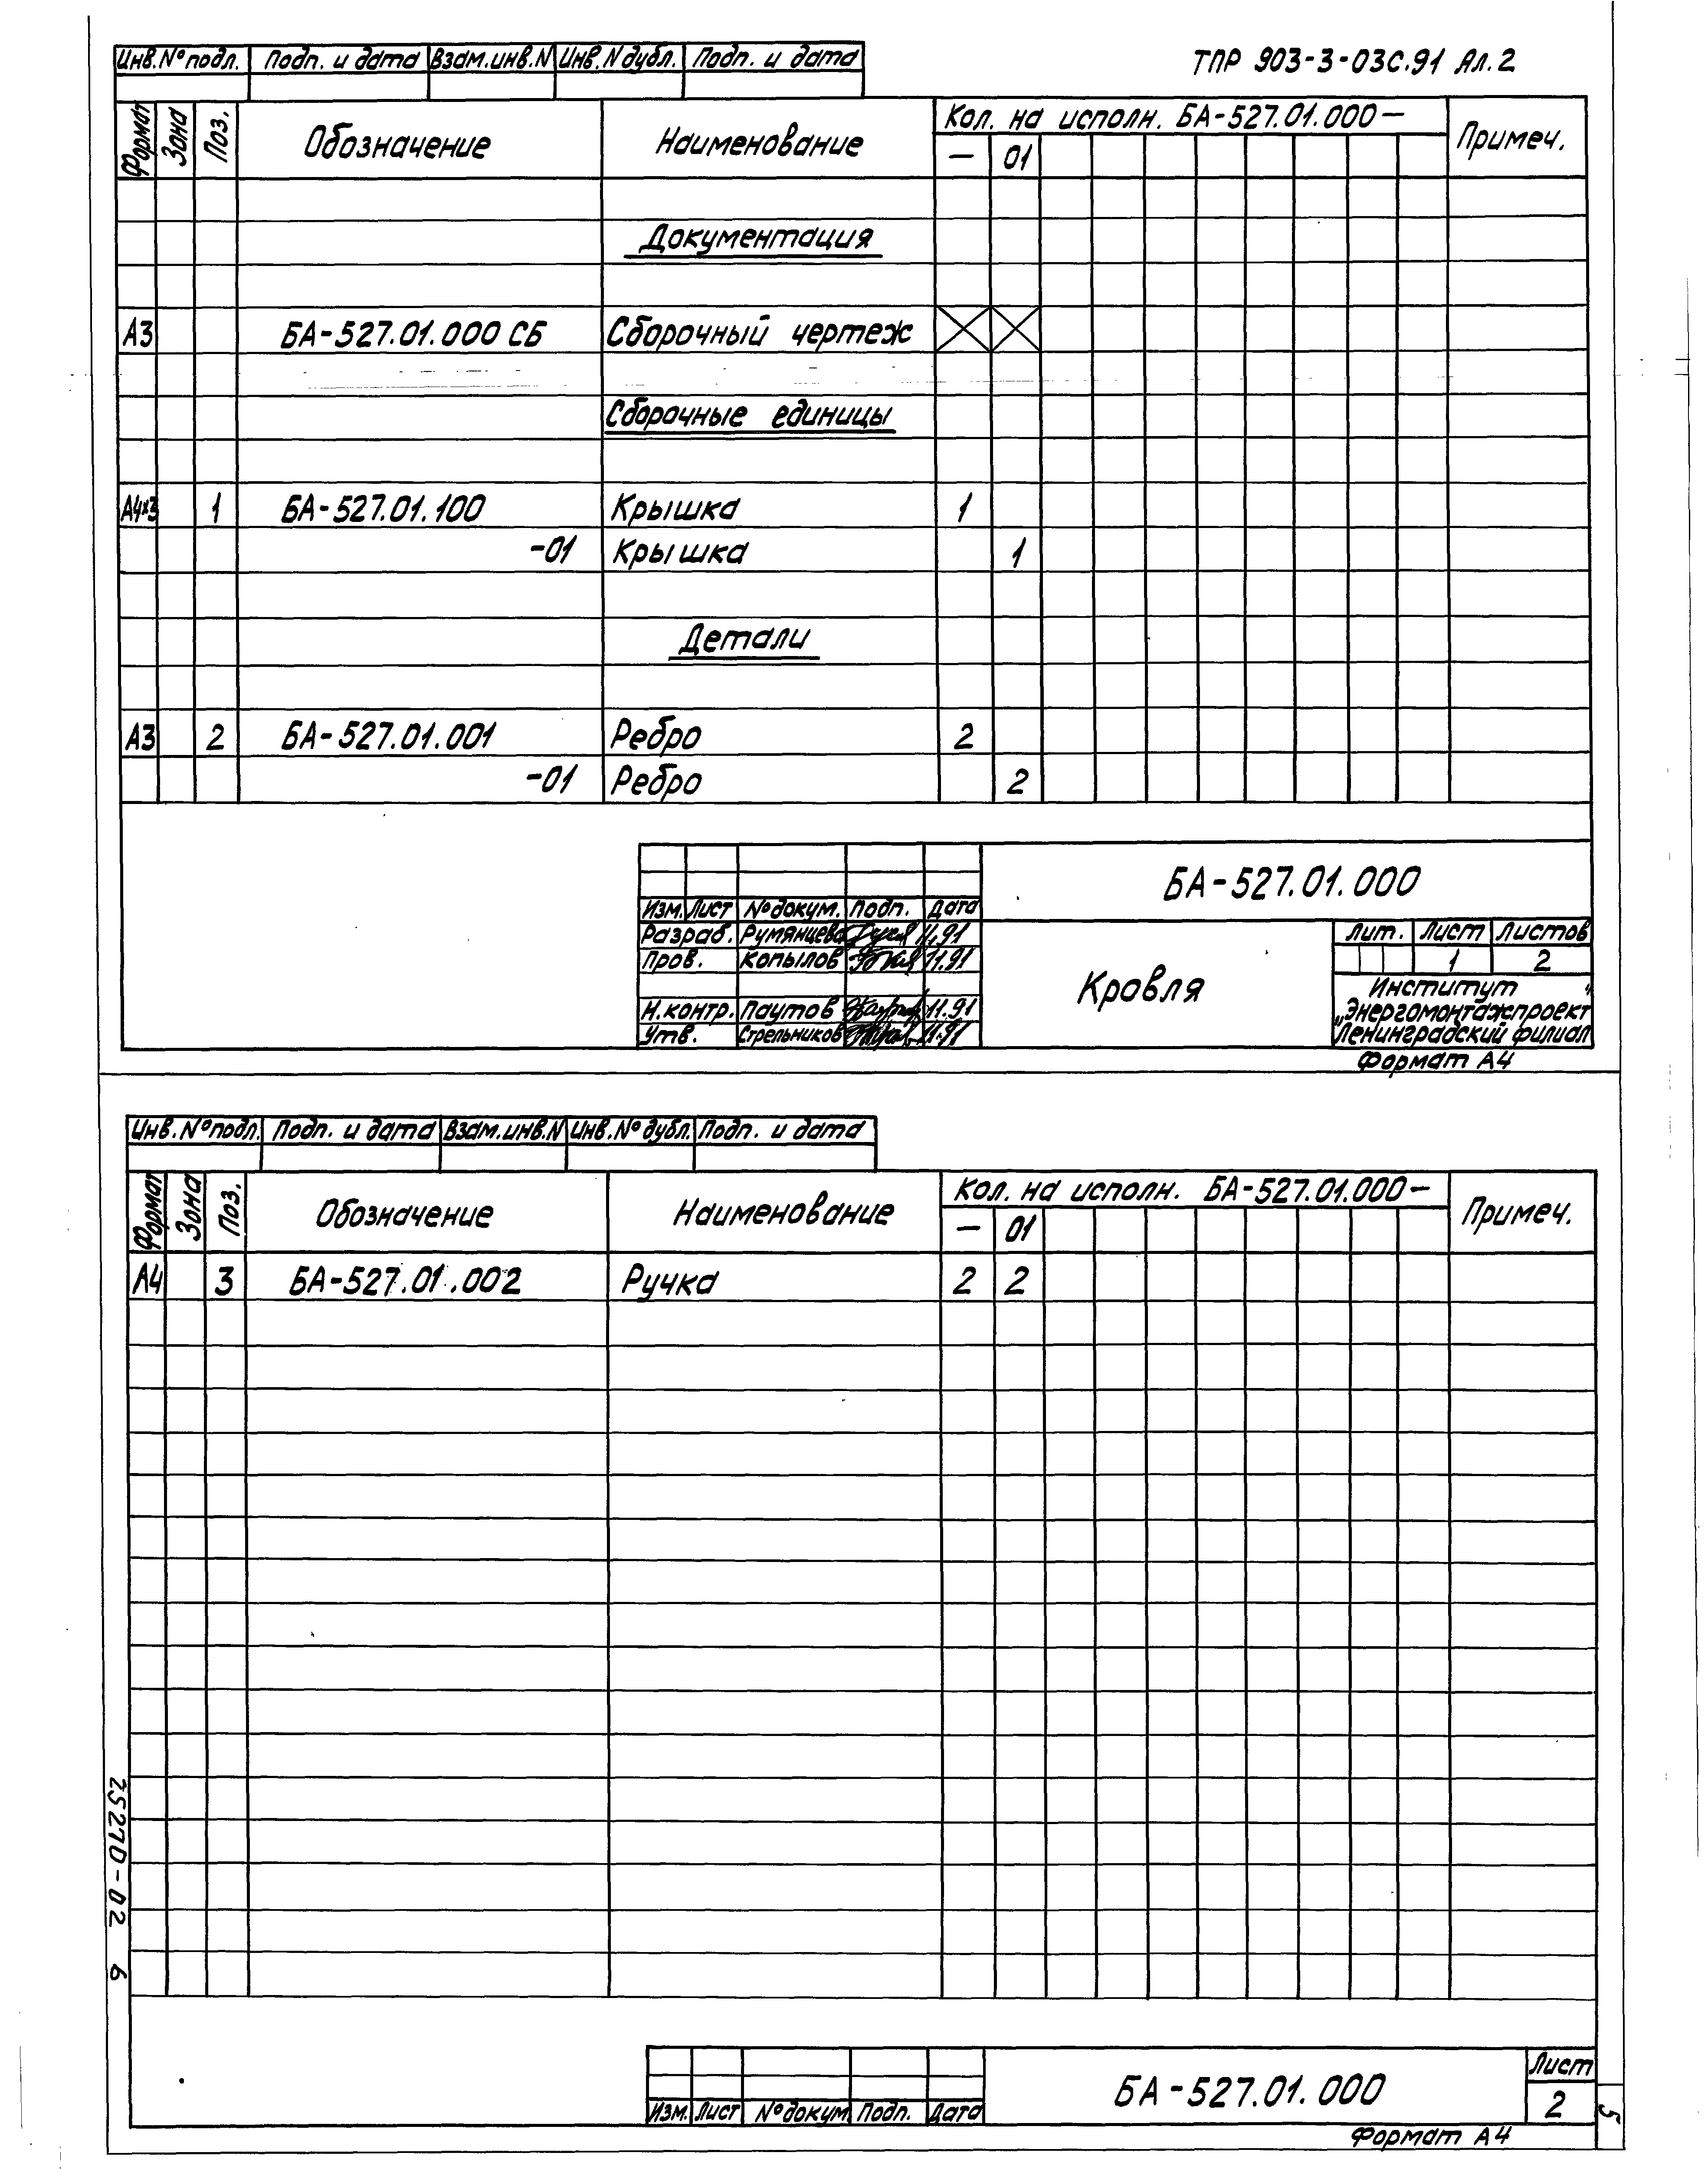 ТПР 903-3-03С.91 Ал.2
Инв.№ подл. Подп. и дата Взам.инв.N Инв.N дубл. Подп. и дата
Формат Зона Поз. Обозначение Наименование Кол. на исполн. БА-527.01.000— Примеч.
— 01
Документация
А3 БА-527.01.000 СБ Сборочный чертеж
Сборочные единицы
А4х3 1 БА-527.01.100 Крышка 1
-01 Крышка 1
Детали
А3 2 БА-527.01.001 Ребро 2
-01 Ребро 2
БА-527.01.000
Изм. Лист № докум. Подп. Дата
Разраб. Румянцева 11.91
Пров. Копылов 11.91
Н.контр. Паутов 11.91
Утв. Стрельников 11.91
Кровля
Лит. Лист Листов
1 2
Институт
„Энергомонтажпроект"
Ленинградский филиал
Формат А4
Инв.№ подл. Подп. и дата Взам.инв.N Инв.№ дубл. Подп. и дата
Формат Зона Поз. Обозначение Наименование Кол. на исполн. БА-527.01.000— Примеч.
— 01
А4 3 БА-527.01.002 Ручка 2 2
25270-02 6
Изм. Лист № докум Подп. Дата
БА-527.01.000
Лист
2
5
Формат А4